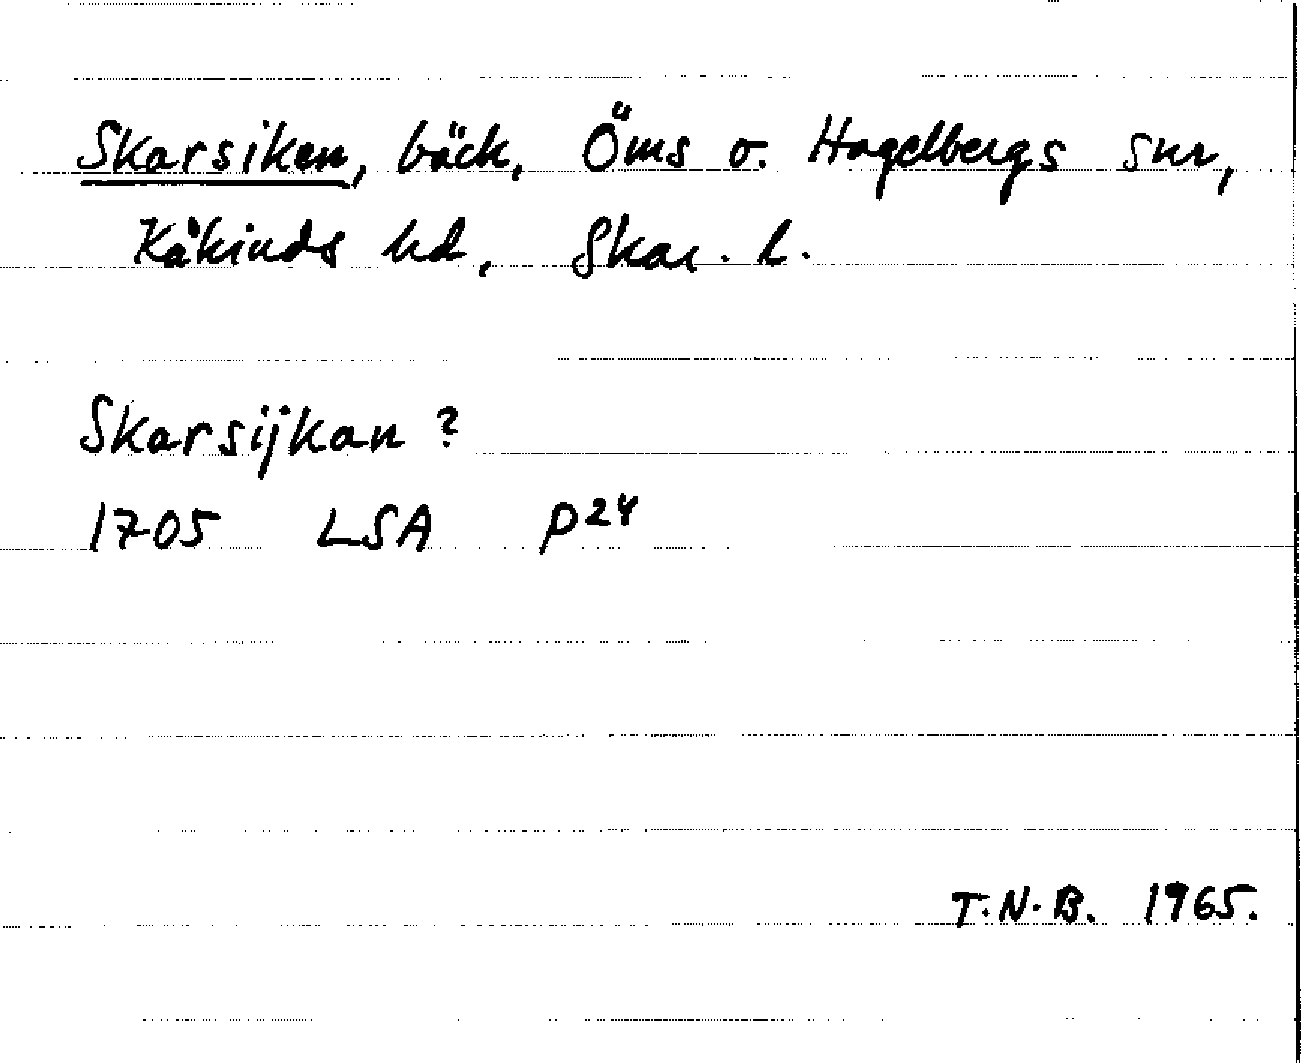 Skarsiken, bäck, Öms o. Hagelbergs snr,
Kåkinds hd, Skar. l.
Skarsijkan?
1705 LSA P24
T.N.B. 1965.